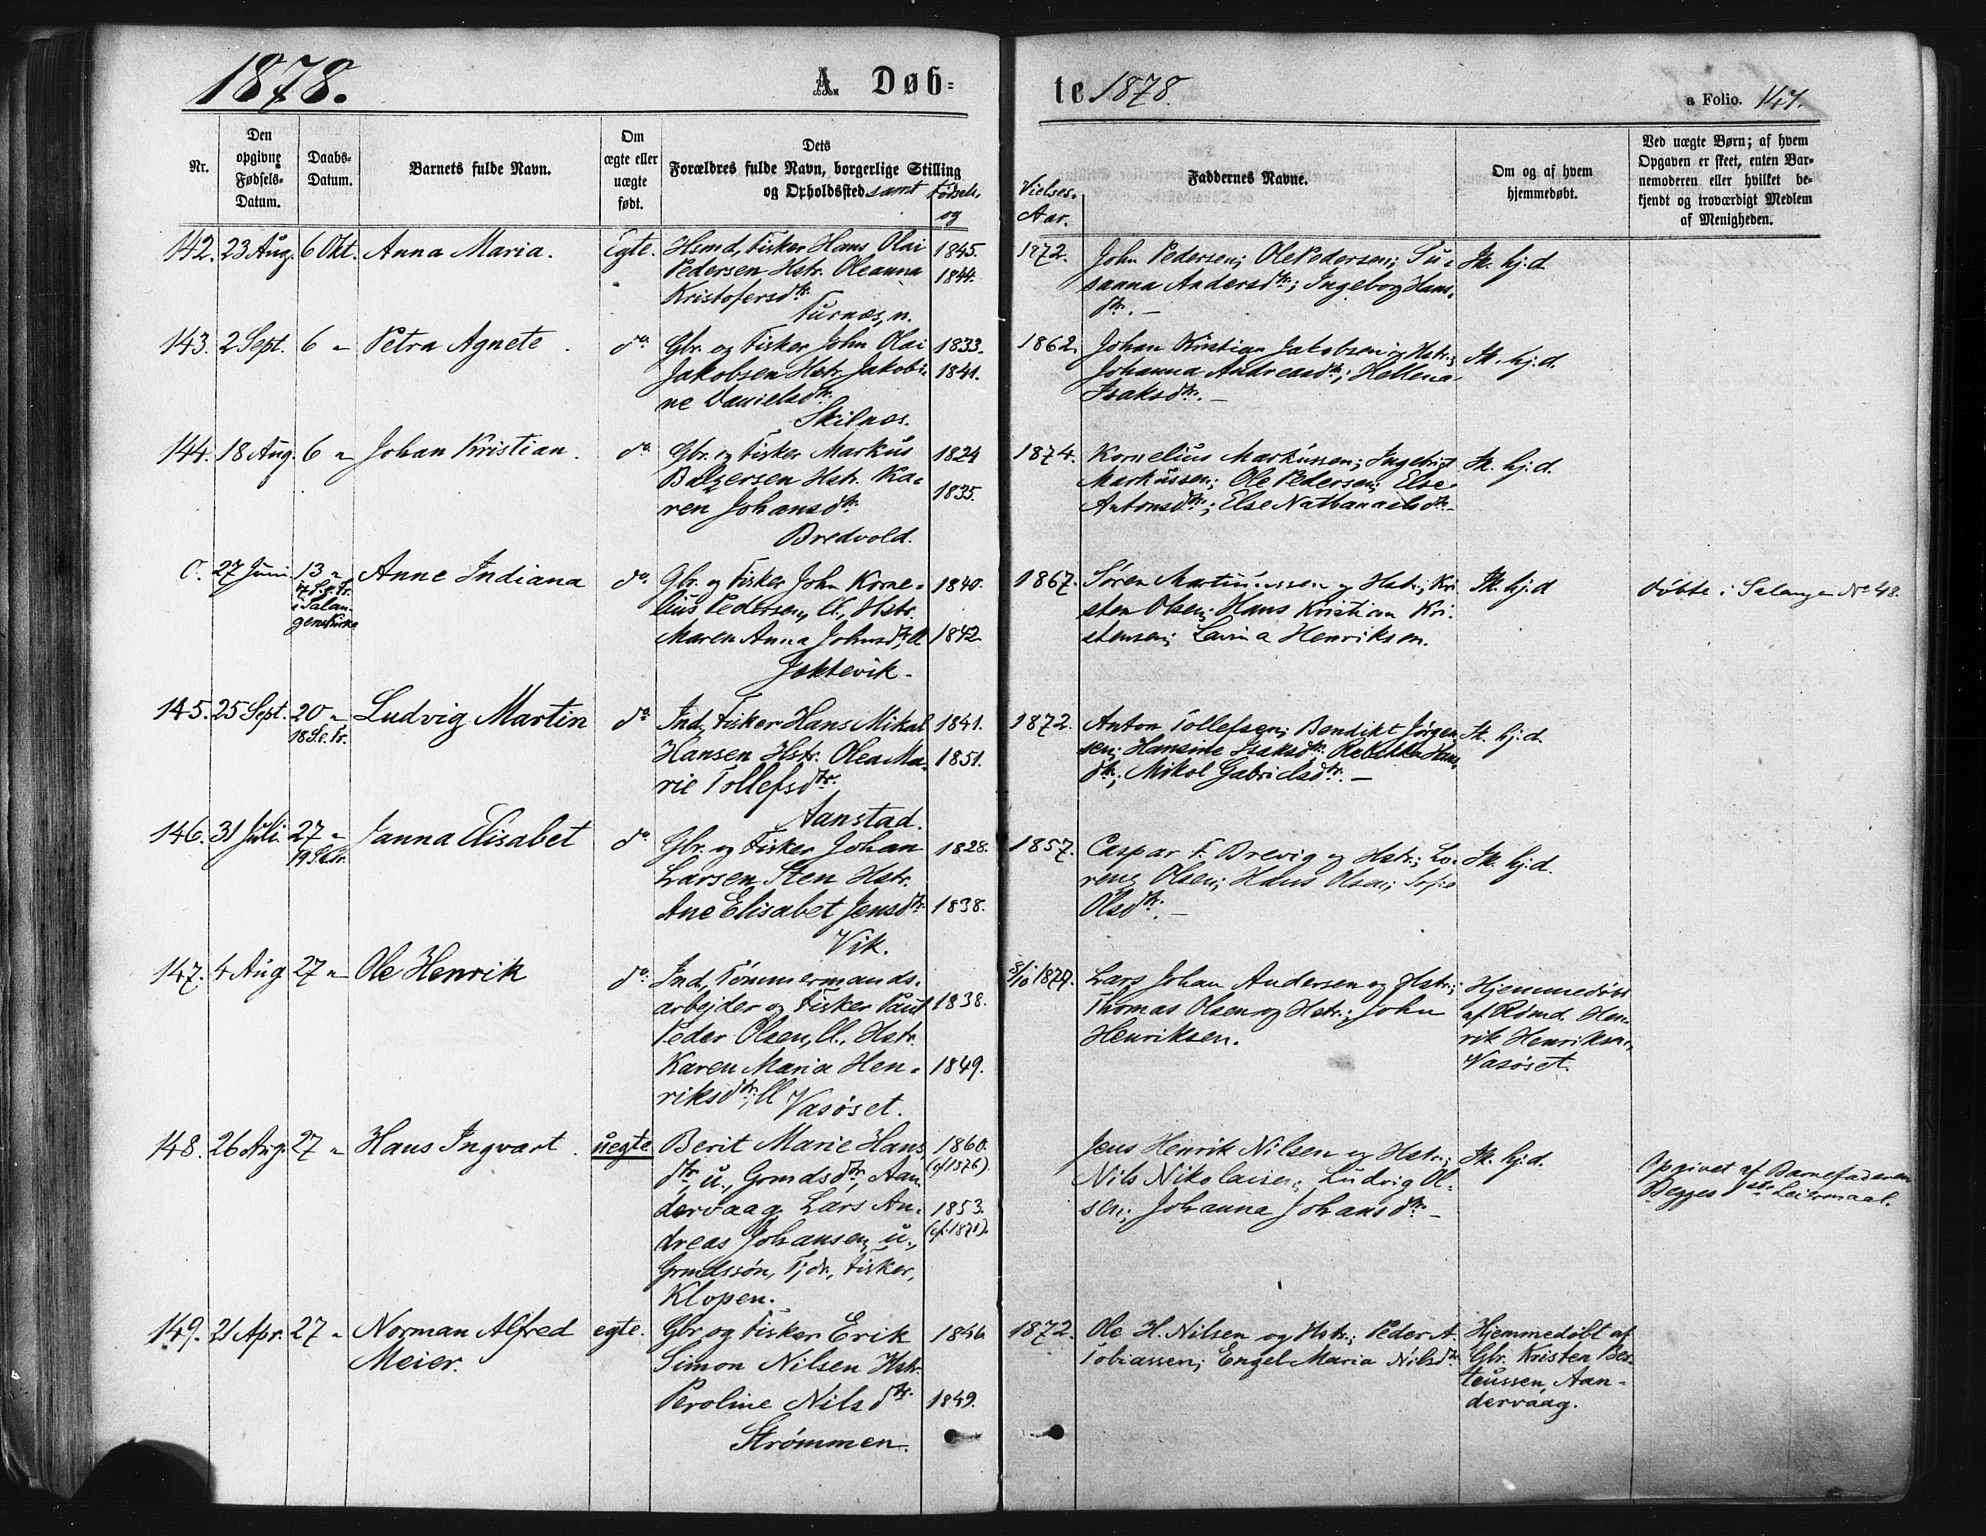 1878. A. Døb= te 1878. a Folio. 147.
Nr. Den opgivne Fødsels-Datum. Daabs-Datum. Barnets fulde Navn. Om ægte eller uægte født. Dets Forældres fulde Navn, borgerlige Stilling og Opholdssted samt Fødsels- og Vielses-Aar. Faddernes Navne. Om og af hvem hjemmedøbt. Ved uægte Børn; af hvem Opgaven er skeet, enten Barnemoderen eller hvilket bekjendt og troværdigt Medlem af Menigheden.
142. 23 Aug. 6 Okt. Anna Maria. Egte. Hsmd, Fisker Hans Olai 1845. 1872. John Pedersen; Ole Pedersen; Su- Ik. hj.d.
Pedersen Hstr. Oleanna 1844. sanna Andersdtr.; Ingeborg Hans-
Kristofersdtr. dtr. —
Furnæs, n.
143. 2 Sept. 6 " Petra Agnete do. Gbr. og Fisker John Olai 1833. 1862. Johan Kristian Jakobsen og Hstr.; Ik. hj.d.
Jakobsen Hstr. Jakobi- 1841. Johanna Andreasdtr.; Hellena
ne Danielsdtr. Isaksdtr. —
Skilnes.
144. 18 Aug. 6 " Johan Kristian. do. Gbr. og Fisker Markus 1824 1874. Kornelius Markussen; Ingebrigt Ik. hj.d.
Balzersen Hstr. Ka- 1835. Markussen; Ole Pedersen; Else
ren Johansdtr. Antonsdtr.; Else Nathanaelsdtr. —
Bredvold.
0. 27 Juni 13 " Anne Indiana do. Gbr. og Fisker John Korne- 1840. 1867. Søren og Hstr.; Kri- Ik. hj.d døbte i Salangen No 48.
i Salan- lius Pedersen, Hstr. sten Olsen; Hans Kristian Kri-
genskirke Maren Anna Johnsdtr. 1842. stensen; Henriksen.
Joktevik.
145. 25 Sept. 20 " Ludvig Martin do. Ind, Fisker Hans Mikal 1841. 1872. Anton Tollefsen; Bendikt Jørgen- Ik. hj.d.
18 S. e. Tr. Hansen Hstr. Olea Ma- 1851. sen; Hansine Isaksdtr. Rebekka Hans-
rie Tollefsdtr. dtr.; Mikol Gabrielsdtr. —
Aanstad.
146. 31 Juli. 27 " Janna Elisabet do. Gbr. og Fisker Johan 1828. 1857. Caspar F. Brevig og Hstr.; Lo- Ik. hj.d.
Larsen Sten Hstr. renz Olsen; Hans Olsen; Sofie
Ane Elisabet Jensdtr. 1838. Olsdtr. —
Vik.
147. 4 Aug 27 " Ole Henrik do. Ind, Tømmermands- Lars Johan Andersen og Hstr.; Hjemmedøbt
arbejder og Fisker Paul 1838. Thomas Olsen og Hstr.; John af Rømd. Hen-
Peder Olsen, Hstr. Henriksen. rik Henriksen,
Karen Maria Hen- 1849. Vasøset.
riksdtr.; Vasøset.
148. 26 Aug. 27 " Hans Ingvart. uegte Berit Marie Hans 1860. Jens Henrik Nilsen og Hstr.; Ik. hj.d. Opgivet af Barnefaderen
dtr, u., Grmdsdtr, Aan- (cf 1876). Nils Nikolaisen; Ludvig Ol- Begges 1ste Leiermaal.
dervaag. Lars An- 1853. sen; Johanna Johansdtr. —
dreas Johansen, u., (cf. 1871).
Grmdssøn, Tjdr., Fisker,
Klopen.
149. 21 Apr. 27 " Norman Alfred egte. Gbr og Fisker Erik 1846 1872. Ole H. Nilsen og Hstr.; Peder A. Hjemmedøbt af
Meier. Simon Nilsen Hstr. Tobiassen; Engel Maria Nilsdtr. Gbr. Kristen Ber-
Peroline Nilsdtr. 1849. teussen, Aan-
Strømmen. dervaag.